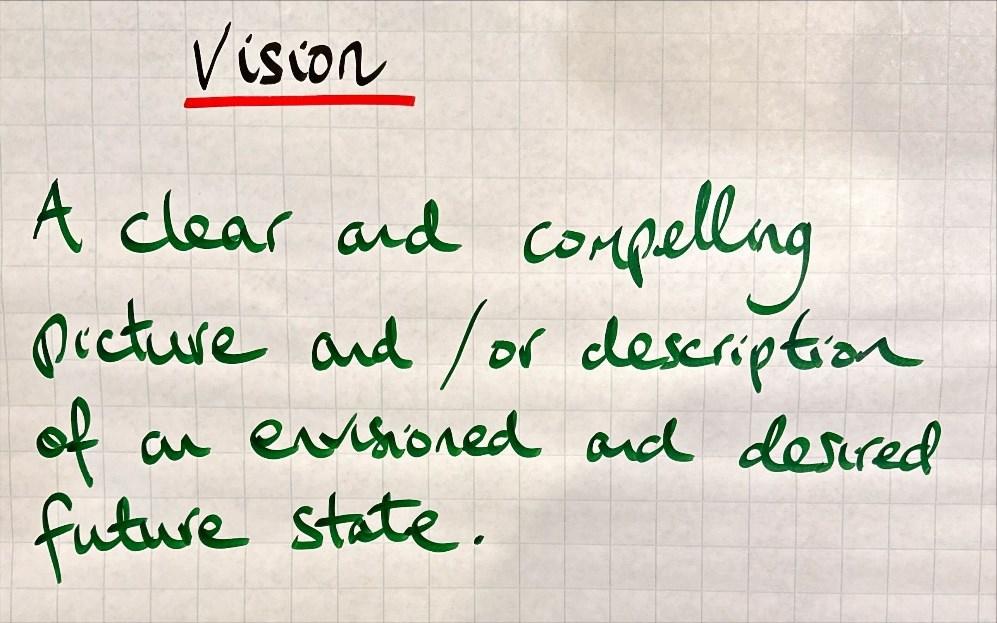 Vision
A clear and compelling
picture and / or description
of an envisioned and desired
future state.